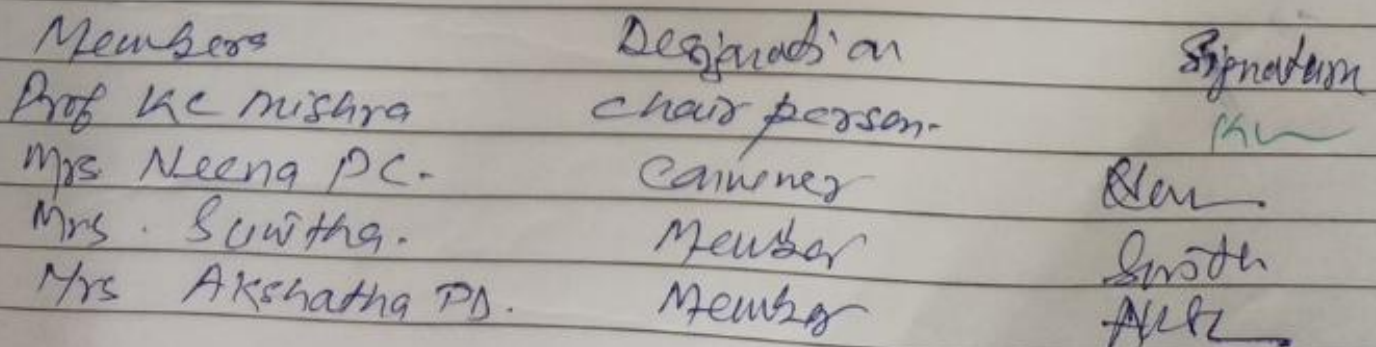 Members Designation Signature
Prof KC Mishra Chair person.
Mrs Neena PC. Convener
Mrs. Suvitha. Member
Mrs Akshatha PD. Member